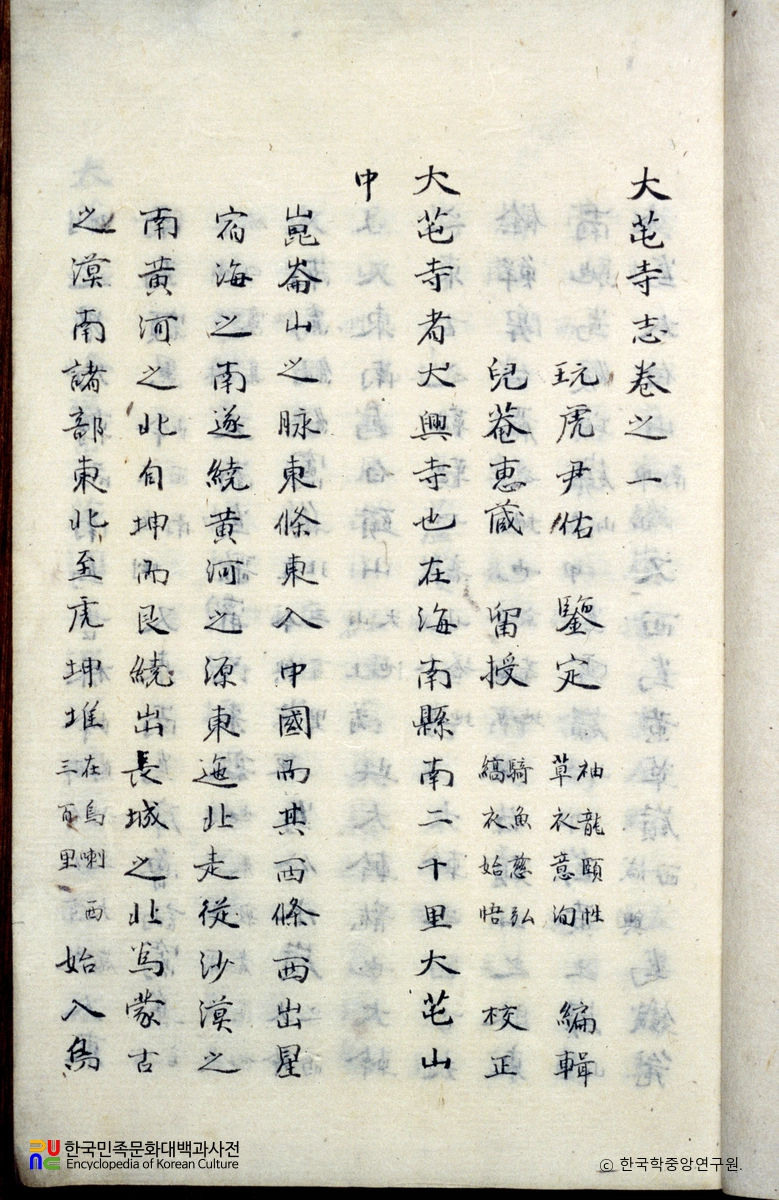 大芚寺志卷之一
玩虎尹佑 鑒定 袖龍頤性 草衣意洵 編輯
兒菴惠藏 留授 騎魚慈弘 縞衣始悟 校正
大芚寺者大興寺也在海南縣南二十里大芚山
中
崑崙山之脉東條東入中國而其西條西出星
宿海之南遂繞黄河之源東迤北走從沙漠之
南黄河之北自坤而艮繞出長城之北爲蒙古
之漠南諸部東北至虎坤堆 在烏喇西 三百里 始入烏
한국민족문화대백과사전
Encyclopedia of Korean Culture
ⓒ 한국학중앙연구원.